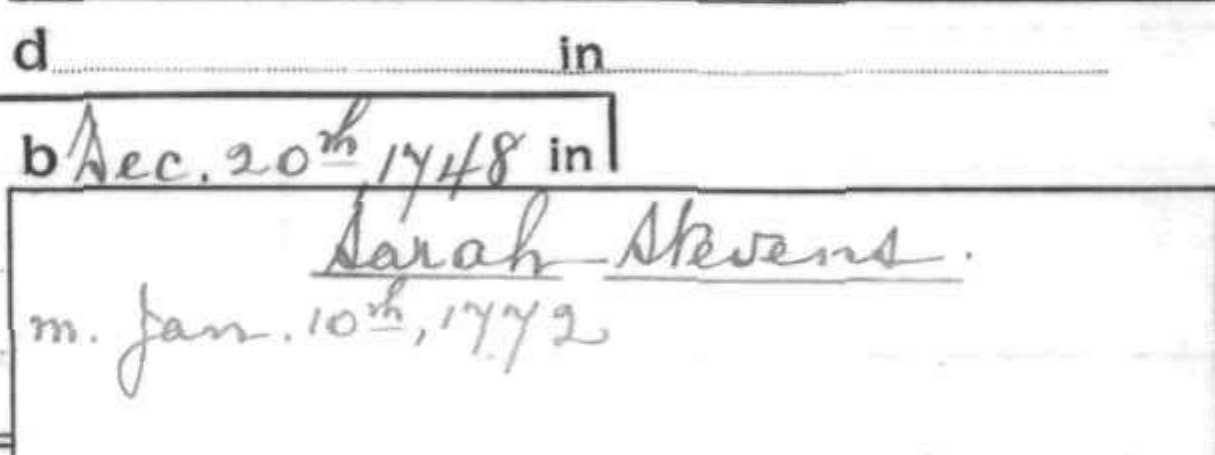 d in
b Dec. 20th, 1748 in
Sarah Stevens.
m. Jan. 10th, 1772